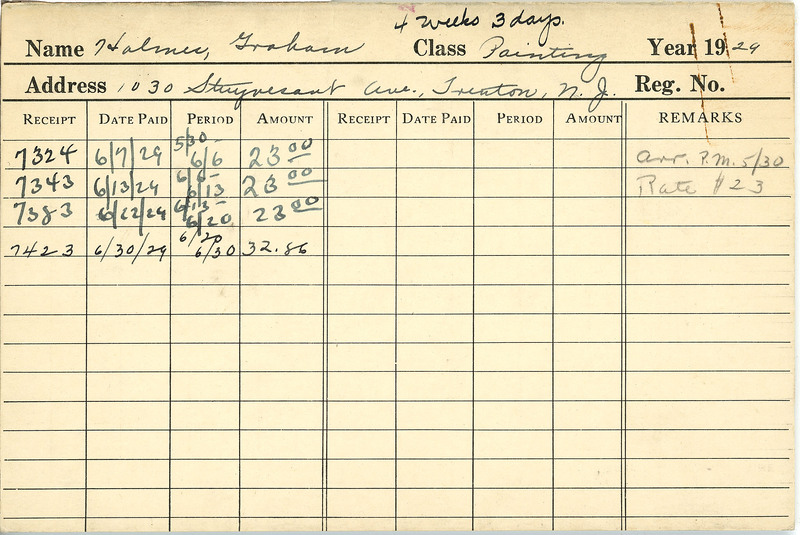 4 weeks 3 days.
Name Holmes, Graham Class Painting Year 1929
Address 1030 Stuyvesant Ave., Trenton, N. J. Reg. No.
RECEIPT DATE PAID PERIOD AMOUNT RECEIPT DATE PAID PERIOD AMOUNT REMARKS
7324 6/7/29 5/30- 6/6 23 00 Arr. P.M. 5/30
7343 6/13/29 6/6- 6/13 23 00 Rate $23
7383 6/22/29 6/13- 6/20 23 00
7423 6/30/29 6/20 6/30 32.86